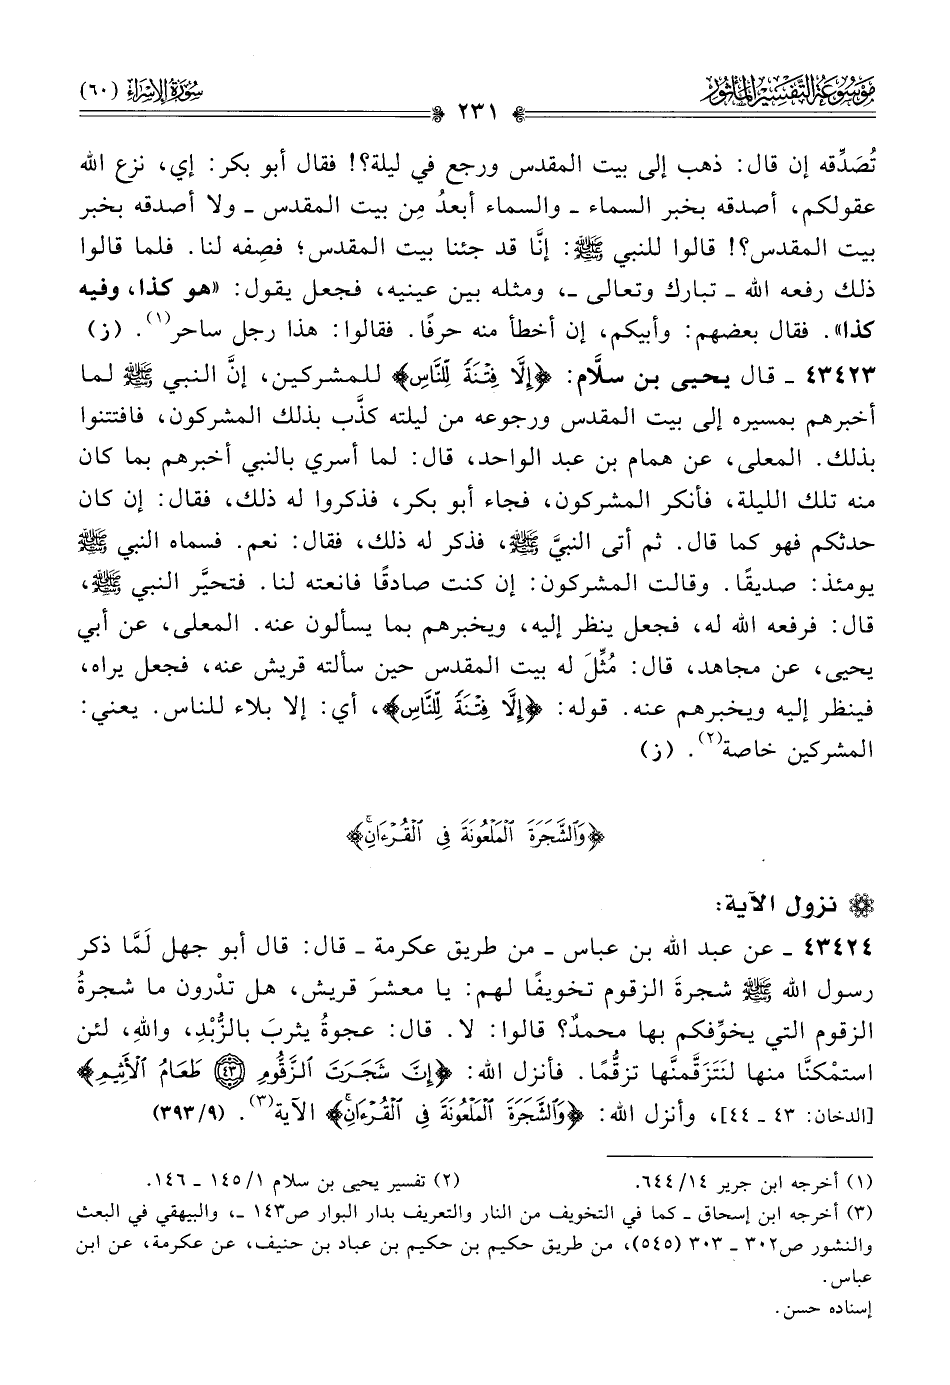 مَوْسُوعَة التَّفْسِير المَأْثُور
سُورَةُ الإِسْرَاء (٦٠)
٢٣١
تُصَدِّقه إن قال: ذهب إلى بيت المقدس ورجع في ليلة؟! فقال أبو بكر: إي، نزع الله
عقولكم، أصدقه بخبر السماء ـ والسماء أبعدُ مِن بيت المقدس ـ ولا أصدقه بخبر
بيت المقدس؟! قالوا للنبي ﷺ: إنَّا قد جئنا بيت المقدس؛ فصِفه لنا. فلما قالوا
ذلك رفعه الله ـ تبارك وتعالى ـ، ومثله بين عينيه، فجعل يقول: «هو كذا، وفيه
كذا». فقال بعضهم: وأبيكم، إن أخطأ منه حرفًا. فقالوا: هذا رجل ساحر(١). (ز)
٤٣٤٢٣ ـ قال يحيى بن سلَّام: ﴿إِلَّا فِتْنَةً لِّلنَّاسِ﴾ للمشركين، إنَّ النبي ﷺ لما
أخبرهم بمسيره إلى بيت المقدس ورجوعه من ليلته كذَّب بذلك المشركون، فافتتنوا
بذلك. المعلى، عن همام بن عبد الواحد، قال: لما أسري بالنبي أخبرهم بما كان
منه تلك الليلة، فأنكر المشركون، فجاء أبو بكر، فذكروا له ذلك، فقال: إن كان
حدثكم فهو كما قال. ثم أتى النبيَّ ﷺ، فذكر له ذلك، فقال: نعم. فسماه النبي ﷺ
يومئذ: صديقًا. وقالت المشركون: إن كنت صادقًا فانعته لنا. فتحيَّر النبي ﷺ،
قال: فرفعه الله له، فجعل ينظر إليه، ويخبرهم بما يسألون عنه. المعلى، عن أبي
يحيى، عن مجاهد، قال: مُثِّلَ له بيت المقدس حين سألته قريش عنه، فجعل يراه،
فينظر إليه ويخبرهم عنه. قوله: ﴿إِلَّا فِتْنَةً لِّلنَّاسِ﴾، أي: إلا بلاء للناس. يعني:
المشركين خاصة(٢). (ز)
﴿وَٱلشَّجَرَةَ ٱلْمَلْعُونَةَ فِى ٱلْقُرْءَانِۚ﴾
نزول الآية:
٤٣٤٢٤ ـ عن عبد الله بن عباس ـ من طريق عكرمة ـ قال: قال أبو جهل لَمَّا ذكر
رسول الله ﷺ شجرةَ الزقوم تخويفًا لهم: يا معشرَ قريش، هل تدْرون ما شجرةُ
الزقوم التي يخوِّفكم بها محمدٌ؟ قالوا: لا. قال: عجوةُ يثربَ بالزُّبْدِ، واللهِ، لئن
استمْكنَّا منها لنَتَزَقَّمنَّها تزقُّمًا. فأنزل الله: ﴿إِنَّ شَجَرَتَ ٱلزَّقُّومِ ٤٣ طَعَامُ ٱلْأَثِيمِ﴾
[الدخان: ٤٣ ـ ٤٤]، وأنزل الله: ﴿وَٱلشَّجَرَةَ ٱلْمَلْعُونَةَ فِى ٱلْقُرْءَانِۚ﴾ الآية(٣). (٣٩٣/٩)
(١) أخرجه ابن جرير ١٤/ ٦٤٤. (٢) تفسير يحيى بن سلام ١/ ١٤٥ ـ ١٤٦.
(٣) أخرجه ابن إسحاق ـ كما في التخويف من النار والتعريف بدار البوار ص١٤٣ ـ، والبيهقي في البعث
والنشور ص٣٠٢ ـ ٣٠٣ (٥٤٥)، من طريق حكيم بن حكيم بن عباد بن حنيف، عن عكرمة، عن ابن
عباس.
إسناده حسن.